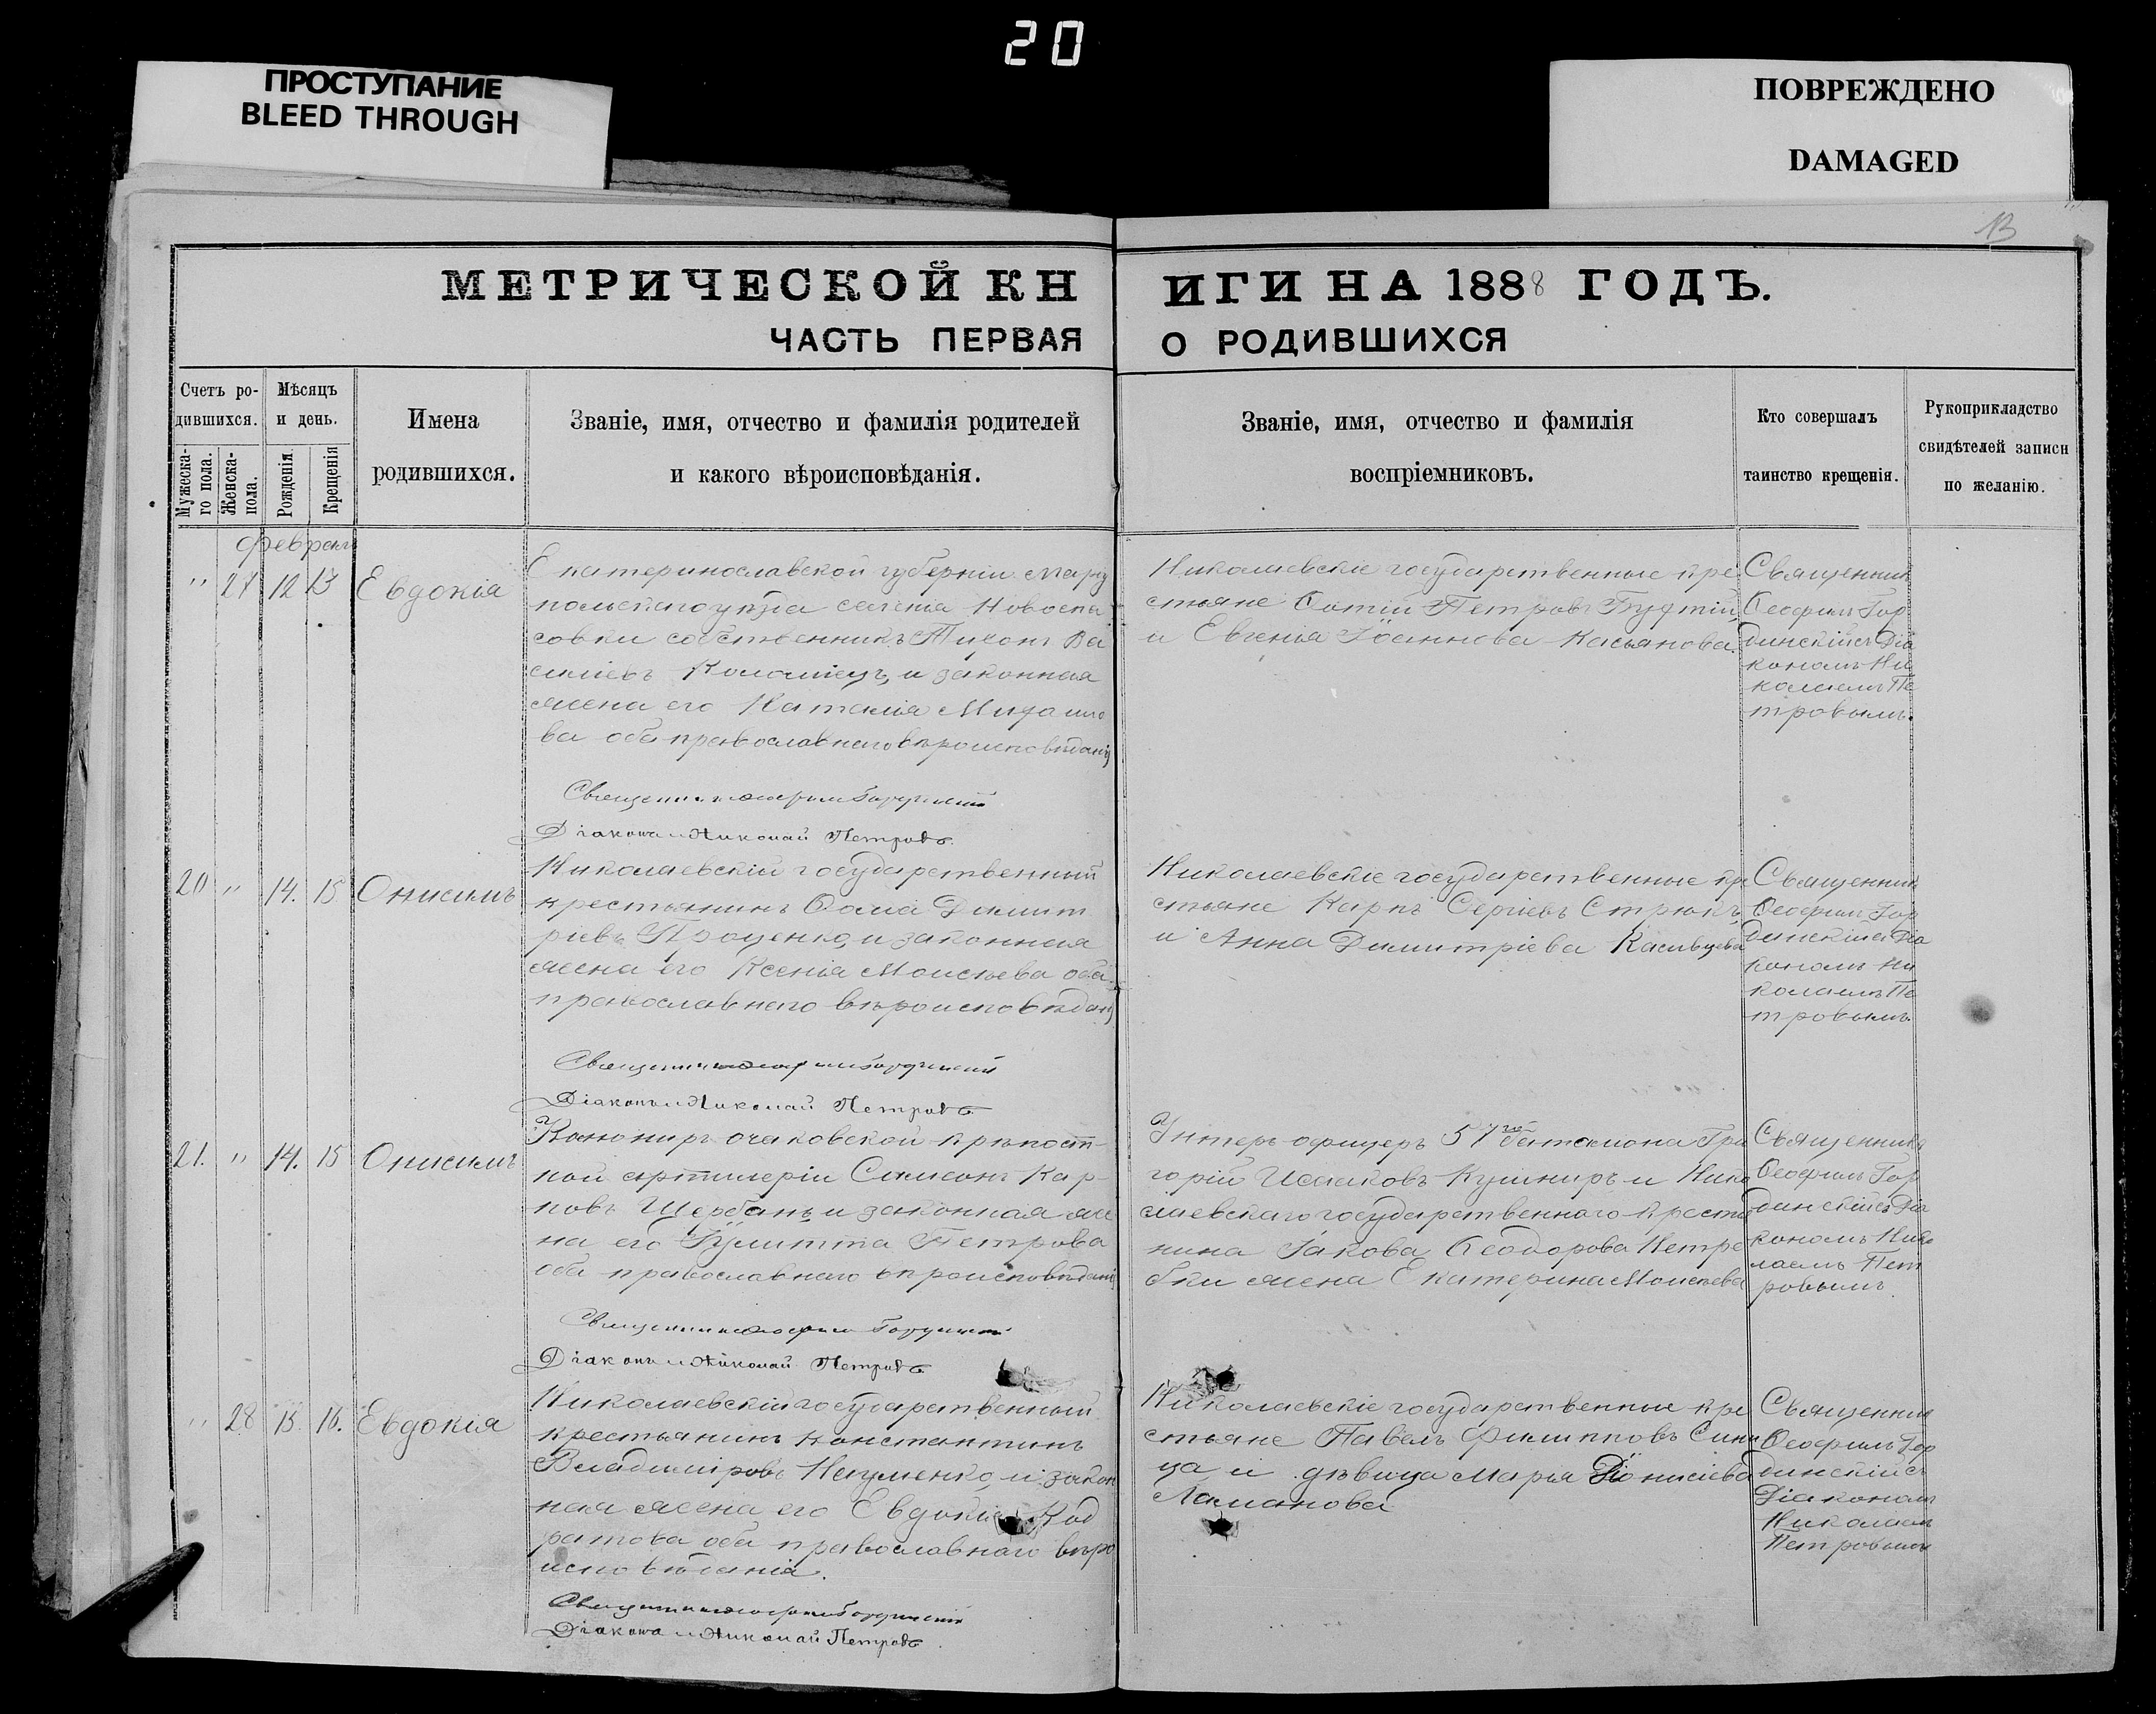 20
ПРОСТУПАНИЕ
BLEED THROUGH
ПОВРЕЖДЕНО
DAMAGED
13
МЕТРИЧЕСКОЙ КНИГИ НА 1888 ГОДЪ.
ЧАСТЬ ПЕРВАЯ О РОДИВШИХСЯ
Счетъ ро-
дившихся.
Мужеска-
го пола.
Женска-
пола.
Мѣсяцъ
и день.
Рожденія.
Крещенія
Имена
родившихся.
Званіе, имя, отчество и фамилія родителей
и какого вѣроисповѣданія.
Званіе, имя, отчество и фамилія
воспріемниковъ.
Кто совершалъ
таинство крещенія.
Рукоприкладство
свидѣтелей записи
по желанію.
" 27 12 13 Евдокія
Екатеринославской губерніи Мариу
польскаго уѣзда селенія Новоспа
совки собственникъ Тихонъ Ва
силіевъ Коломіецъ, и законная
жена его Наталія Михаило
ва оба православнаго вѣроисповѣданія
Діаконъ Николай Петровъ
Николаевскіе государственные кре
стьяне Петровъ
и Евгенія Іоаннова Касьянова.
Священникъ
Ѳеофилъ Гор
динскій съ Діа
кономъ Ни
колаемъ Пе
тровымъ.
20 " 14. 15 Онисимъ
Николаевскій государственный
крестьянинъ Ѳома Димит
ріевъ Проценко, и законная
жена его Ксенія Моисѣева оба
православнаго вѣроисповѣданія
Діаконъ Николай Петровъ
Николаевскіе государственные кре
стьяне Карпъ Сергіевъ Стрюкъ,
и Анна Димитріева
Священникъ
Ѳеофилъ Гор
динскій съ Діа
кономъ Ни
колаемъ Пе
тровымъ.
21. " 14. 15 Онисимъ
Канониръ очаковской крѣпост-
ной артилеріи Самсонъ Кар-
повъ Щербань, и законная же
на его Іулитта Петрова
оба православнаго вѣроисповѣданія
Діаконъ Николай Петровъ
Унтеръ-офицеръ 57го баталіона Гри
горій Исааковъ Кушниръ и Нико
лаевскаго государственнаго крестья
нина Іакова Ѳеодорова Нетре
бки жена Екатерина Моисѣева
Священникъ
Ѳеофилъ Гор
динскій съ Діа
кономъ Нико
лаемъ Пет
ровымъ.
" 28 15. 16. Евдокія
Николаевскій государственный
крестьянинъ Константинъ
Владиміровъ Науменко, и закон
ная жена его Евдокія Код
ратова оба православнаго вѣро
исповѣданія.
Діаконъ Николай Петровъ
Николаевскіе государственные кре
стьяне Павелъ Филипповъ Сини
ца, и дѣвица Марья Діонисіева
Ламанова
Священникъ
Ѳеофилъ Гор
динскій съ
Діакономъ
Николаемъ
Петровымъ